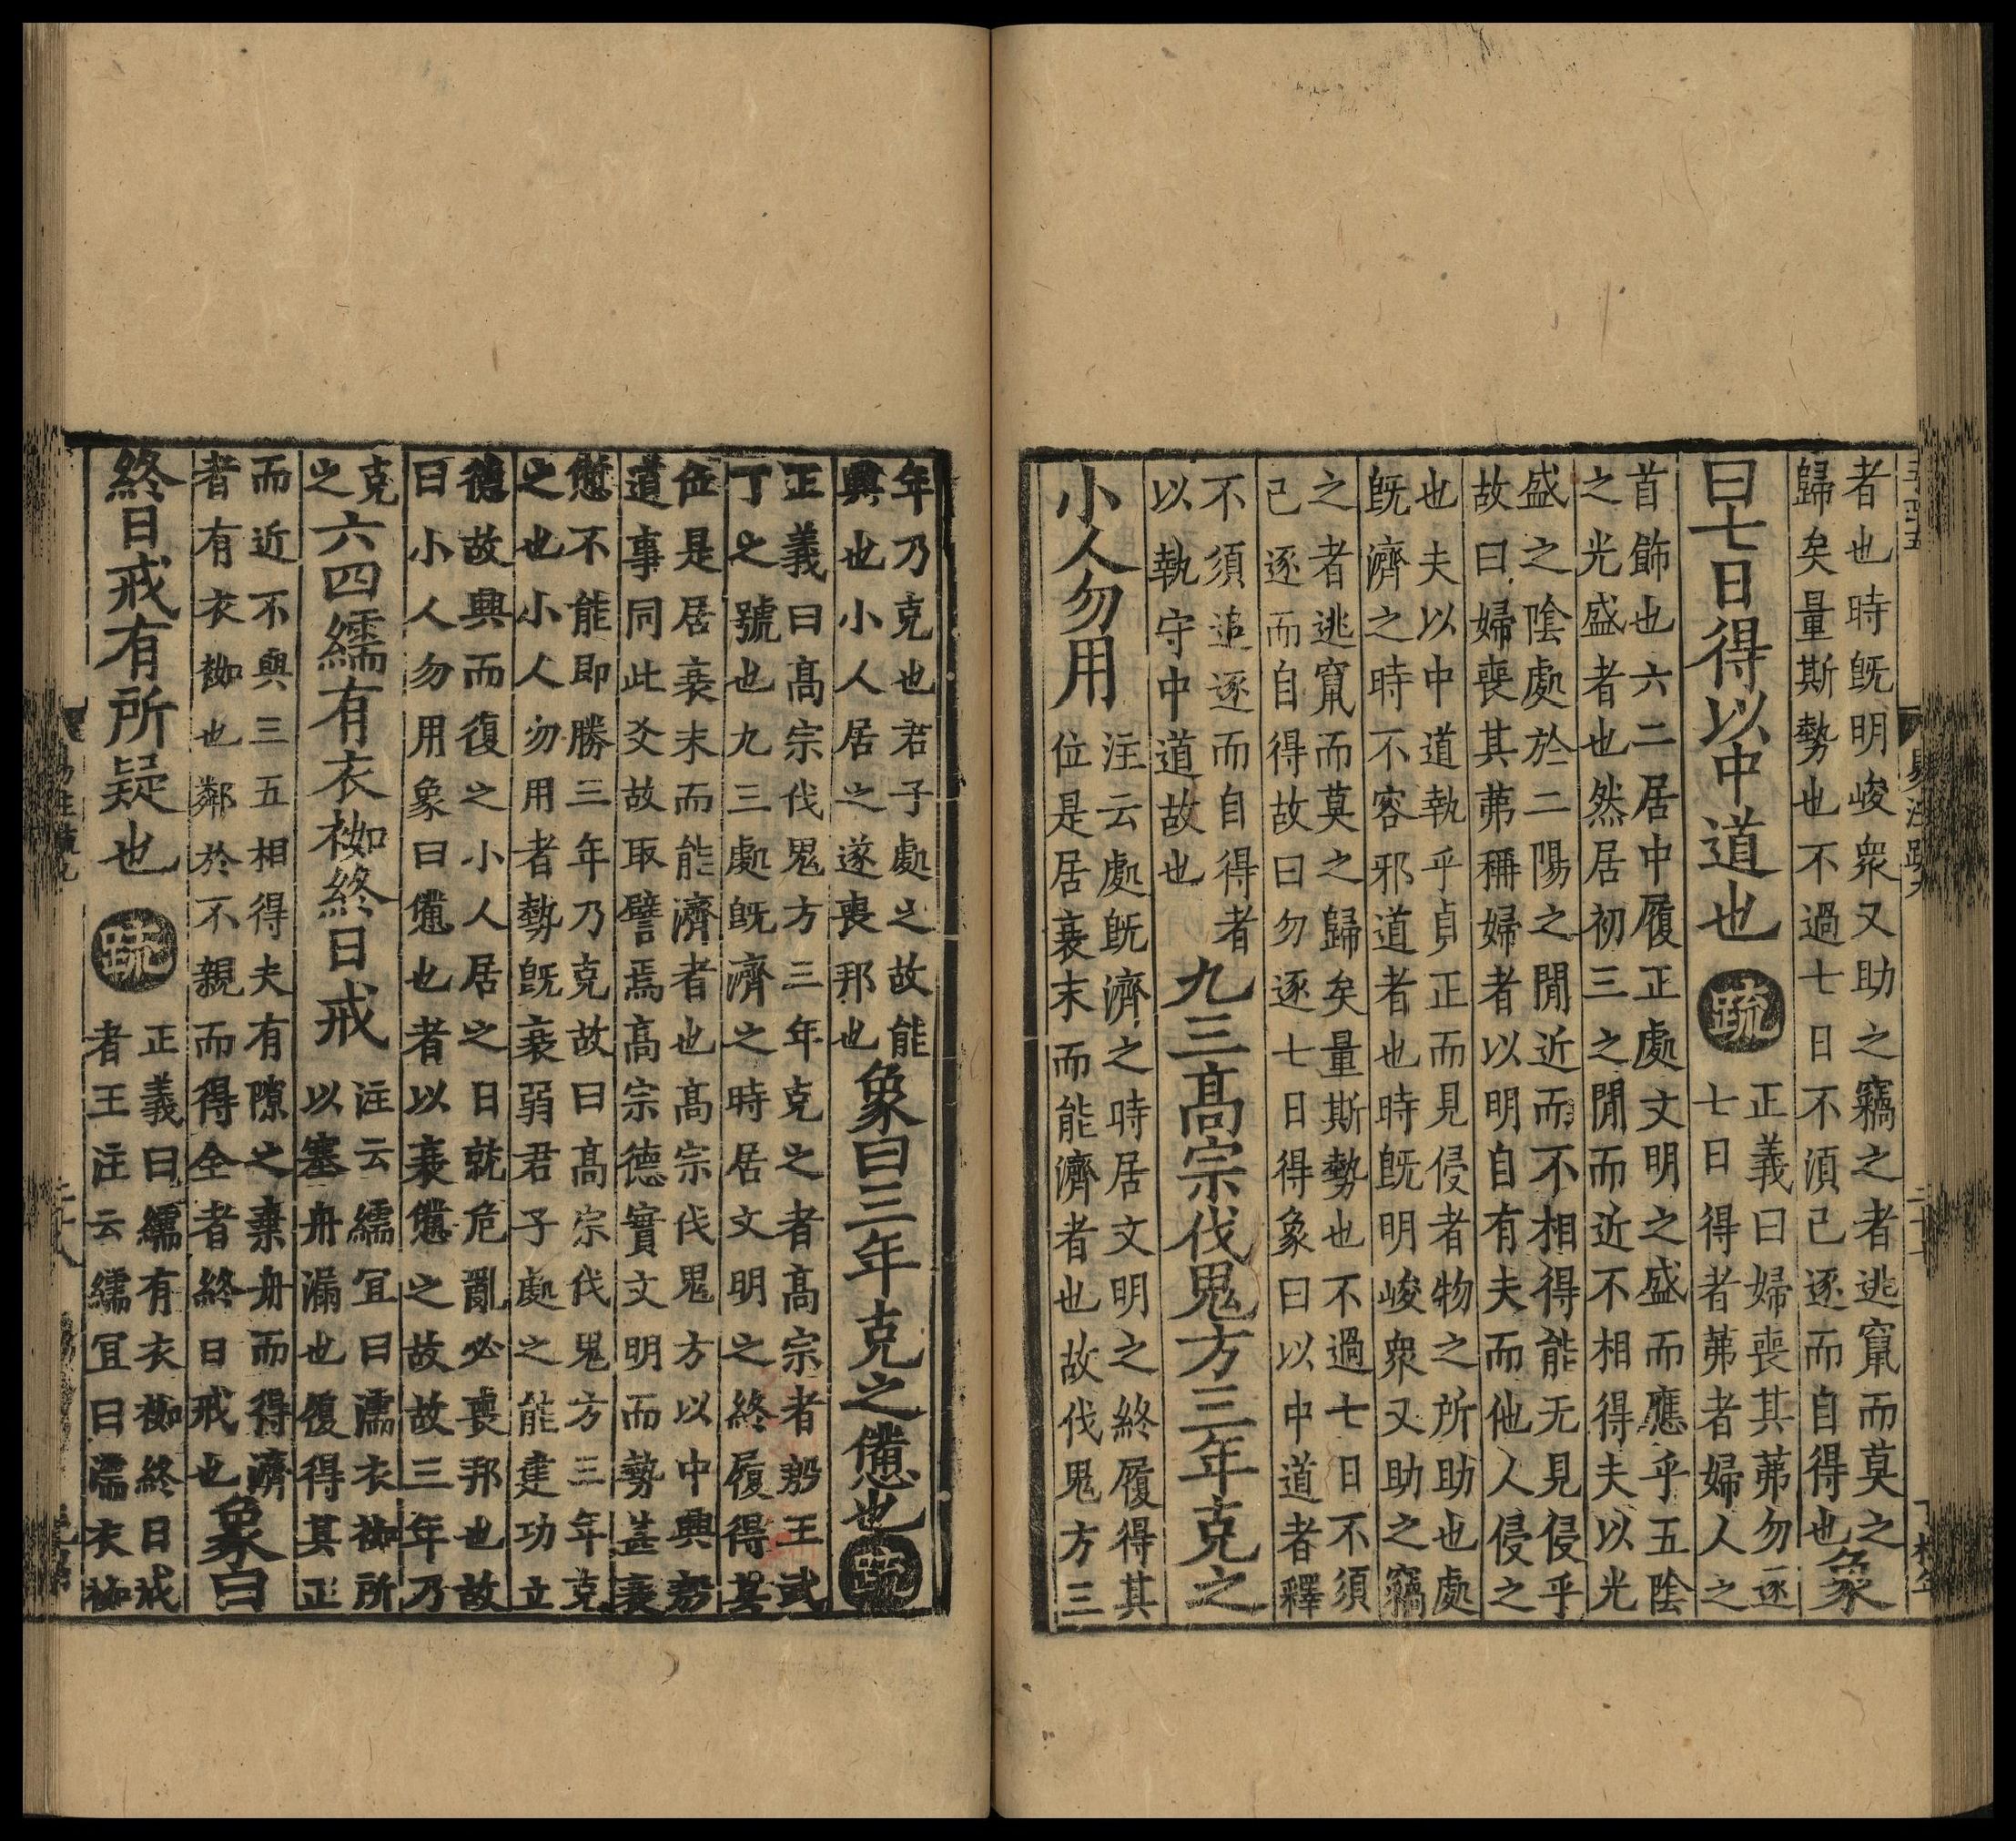 者也時旣明峻衆又助之竊之者逃竄而莫之
歸矣量斯勢也不過七日不須己逐而自得也
象
曰七日得以中道也
疏
正義曰婦喪其茀勿逐
七日得者茀者婦人之
首飾也六二居中履正處文明之盛而應乎五陰
之光盛者也然居初三之閒而近不相得夫以光
盛之陰處於二陽之閒近而不相得能无見侵乎
故曰婦喪其茀稱婦者以明自有夫而他人侵之
也夫以中道執乎貞正而見侵者物之所助也處
旣濟之時不容邪道者也時旣明峻衆又助之竊
之者逃竄而莫之歸矣量斯勢也不過七日不須
己逐而自得故曰勿逐七日得象曰以中道者釋
不須追逐而自得者
以執守中道故也
九三高宗伐鬼方三年克之
小人勿用
注云處旣濟之時居文明之終履得其
位是居衰末而能濟者也故伐鬼方三
年乃克也君子處之故能
興也小人居之遂喪邦也
象曰三年克之憊也
疏
正義曰高宗伐鬼方三年克之者高宗者殷王武
丁之號也九三處旣濟之時居文明之終履得其
位是居衰末而能濟者也高宗伐鬼方以中興殷
道事同此爻故取譬焉高宗德實文明而勢甚衰
憊不能即勝三年乃克故曰高宗伐鬼方三年克
之也小人勿用者勢旣衰弱君子處之能建功立
德故興而復之小人居之日就危亂必喪邦也故
曰小人勿用象曰憊也者以衰憊之故故三年乃
克
之
六四繻有衣袽終日戒
注云繻宜曰濡衣袽所
以塞舟漏也履得其正
而近不與三五相得夫有隙之棄舟而得濟
者有衣袽也鄰於不親而得全者終日戒也
象曰
終日戒有所疑也
疏
正義曰繻有衣袽終日戒
者王注云繻宜曰濡衣袽